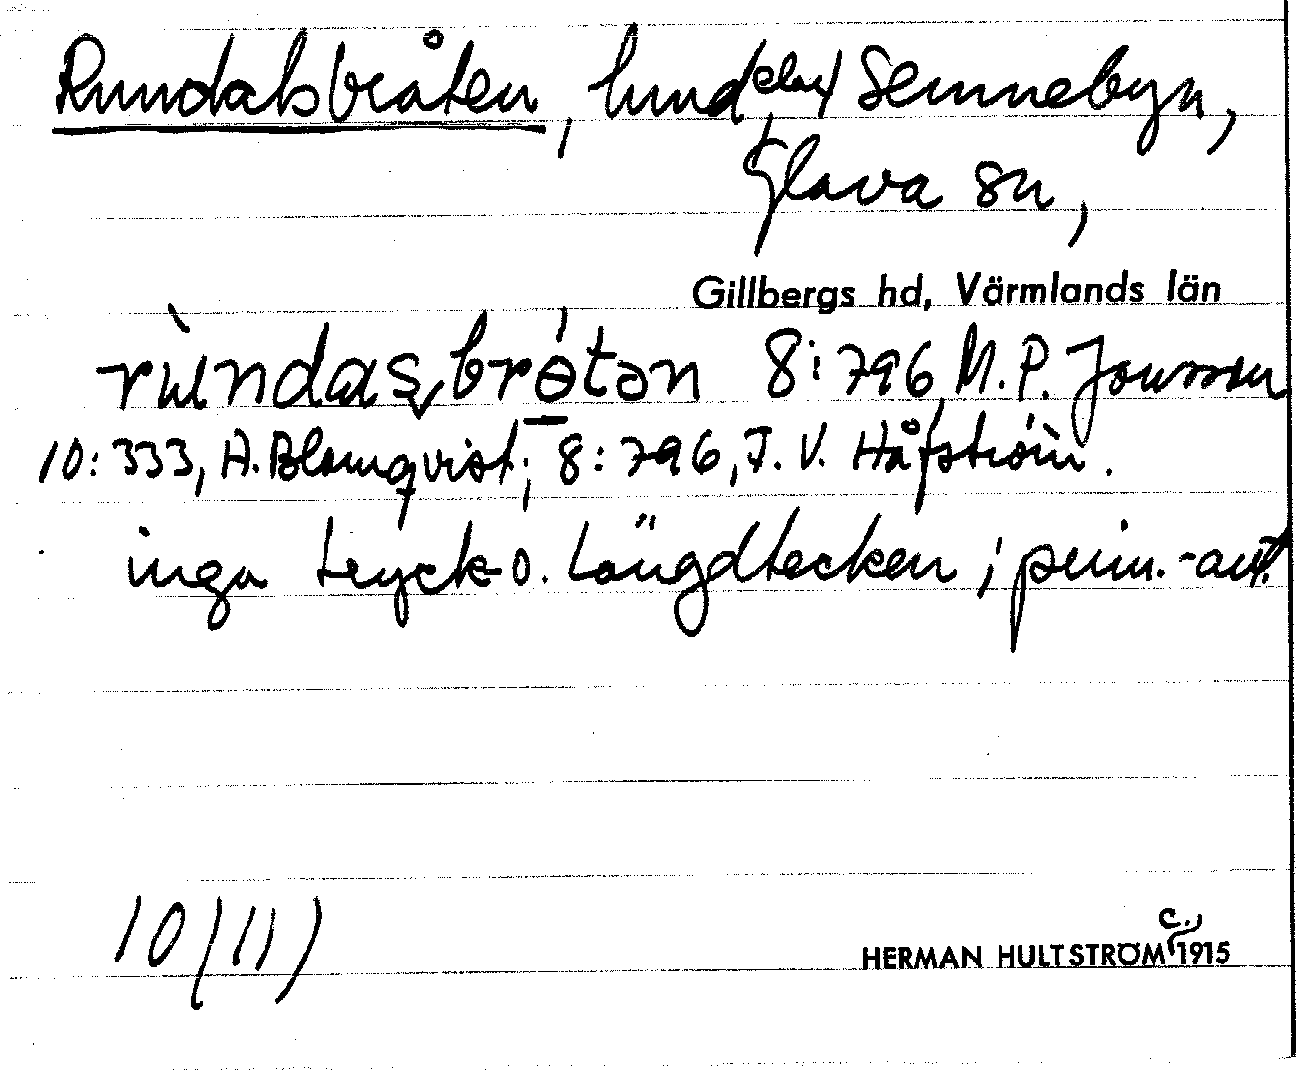 Rundalsbråten, lund (el ax) Semnebyn,
Glava sn,
Gillbergs hd, Värmlands län
rùndasbrötən 8:796, M. P. Jonsson
10:333, A. Blomqvist; 8:796, J. V. Håfström.
inga tryck- o. längdtecken i prim.-ant.
10 (11)
HERMAN HULTSTRÖM c., 1915